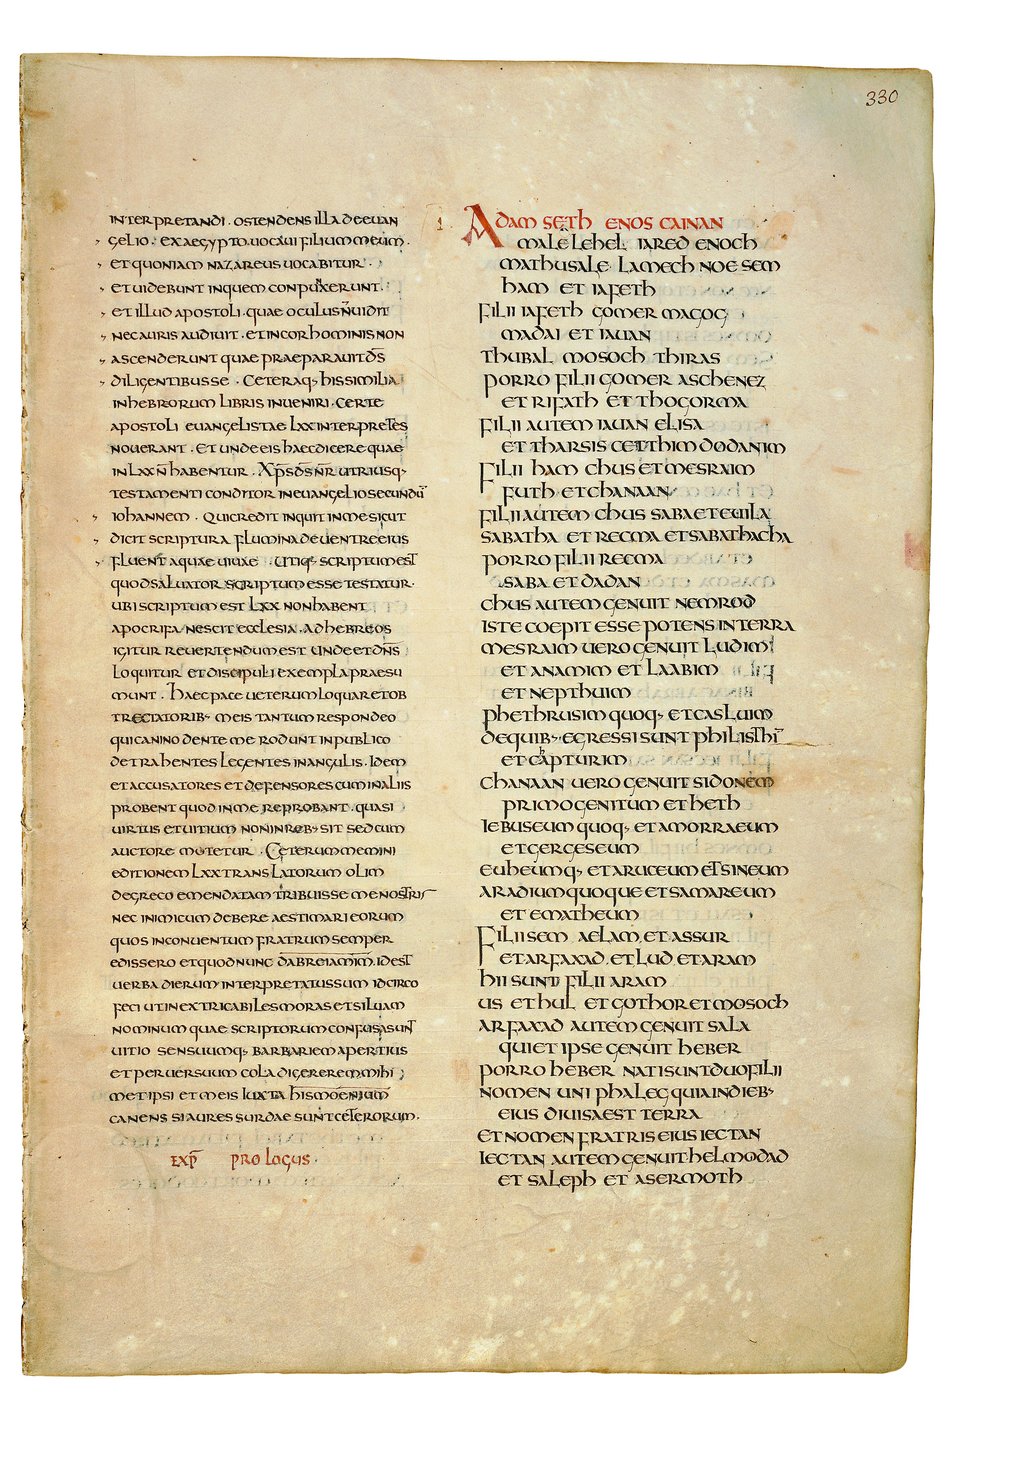 330
INTERPRETANDI · OSTENDENS ILLA DE EUAN
GELIO · EX AEGYPTO UOCAUI FILIUM MEUM ·
ET QUONIAM NAZAREUS UOCABITUR ·
ET UIDEBUNT INQUEM CONPUXERUNT ·
ET ILLUD APOSTOLI · QUAE OCULUS N̄ UIDIT
NEC AURIS AUDIUIT · ET IN COR HOMINIS NON
ASCENDERUNT QUAE PRAEPARAUIT D̄S
DILIGENTIBUS SE · CETERAQ· HIS SIMILIA
IN HEBREORUM LIBRIS INUENIRI · CERTE
APOSTOLI EUANGELISTAE LXX INTERPRETES
NOUERANT · ET UNDE EIS HAEC DICERE QUAE
IN LXX N̄ HABENTUR · XP̄S D̄S N̄R UTRIUSQ·
TESTAMENTI CONDITOR IN EUANGELIO SECUNDŪ
IOHANNEM · QUI CREDIT INQUIT IN ME SICUT
DICIT SCRIPTURA FLUMINA DE UENTRE EIUS
FLUENT AQUAE UIUAE · UTIQ· SCRIPTUM EST
QUOD SALUATOR SCRIPTUM ESSE TESTATUR ·
UBI SCRIPTUM EST LXX NON HABENT
APOCRIFA NESCIT ECCLESIA · AD HEBREOS
IGITUR REUERTENDUM EST UNDE ET DN̄S
LOQUITUR ET DISCIPULI EXEMPLA PRAESU
MUNT · HAEC PACE UETERUM LOQUAR ET OB
TRECTATORIB· MEIS TANTUM RESPONDEO
QUI CANINO DENTE ME RODUNT IN PUBLICO
DETRAHENTES LEGENTES IN ANGULIS · IDEM
ET ACCUSATORES ET DEFENSORES CUM IN ALIIS
PROBENT QUOD IN ME REPROBANT · QUASI
UIRTUS ET UITIUM NON IN REB· SIT SED CUM
AUCTORE MUTETUR · CETERUM MEMINI
EDITIONEM LXX TRANSLATORUM OLIM
DE GRECO EMENDATAM TRIBUISSE ME NOSTRIS
NEC INIMICUM DEBERE AESTIMARI EORUM
QUOS IN CONUENTUM FRATRUM SEMPER
EDISSERO ET QUOD NUNC DABREIAMIM · ID EST
UERBA DIERUM INTERPRETATUS SUM IDCIRCO
FECI UT INEXTRICABILES MORAS ET SILUAM
NOMINUM QUAE SCRIPTORUM CONFUSA SUNT
UITIO SENSUUMQ· BARBARIEM APERTIUS
ET PER UERSUUM COLA DIGEREREM MIHI
MET IPSI ET MEIS IUXTA HISMOENIUM
CANENS SI AURES SURDAE SUNT CETERORUM ·
EXP̄ PROLOGUS ·
1 ADAM SETH ENOS CAINAN
MALELEHEL IARED ENOCH
MATHUSALE LAMECH NOE SEM
HAM ET IAFETH
FILII IAFETH GOMER MAGOG
MADAI ET IAUAN
THUBAL MOSOCH THIRAS
PORRO FILII GOMER ASCHENEZ
ET RIFATH ET THOGORMA
FILII AUTEM IAUAN ELISA
ET THARSIS CETTHIM DODANIM
FILII HAM CHUS ET MESRAIM
FUTH · ET CHANAAN
FILII AUTEM CHUS SABA ET EUILA
SABATHA ET REGMA ET SABATHACHA
PORRO FILII REGMA
SABA ET DADAN
CHUS AUTEM GENUIT NEMROD
ISTE COEPIT ESSE POTENS IN TERRA
MESRAIM UERO GENUIT LUDIM
ET ANAMIM ET LAABIM
ET NEPTHUIM
PHETHRUSIM QUOQ· ET CASLUIM
DE QUIB· EGRESSI SUNT PHILISTHĪ
ET CAPTURIM
CHANAAN UERO GENUIT SIDONEM
PRIMOGENITUM ET HETH
IEBUSEUM QUOQ· ET AMORRAEUM
ET GERGESEUM
EUHEUMQ· ET ARUCEUM ET SINEUM
ARADIUM QUOQUE ET SAMAREUM
ET EMATHEUM
FILII SEM AELAM ET ASSUR
ET ARFAXAD ET LUD ET ARAM
HII SUNT FILII ARAM
US ET HUL ET GOTHOR ET MOSOCH
ARFAXAD AUTEM GENUIT SALA
QUI ET IPSE GENUIT HEBER
PORRO HEBER NATI SUNT DUO FILII
NOMEN UNI PHALEG QUIA IN DIEB·
EIUS DIUISA EST TERRA
ET NOMEN FRATRIS EIUS IECTAN
IECTAN AUTEM GENUIT HELMODAD
ET SALEPH ET ASERMOTH